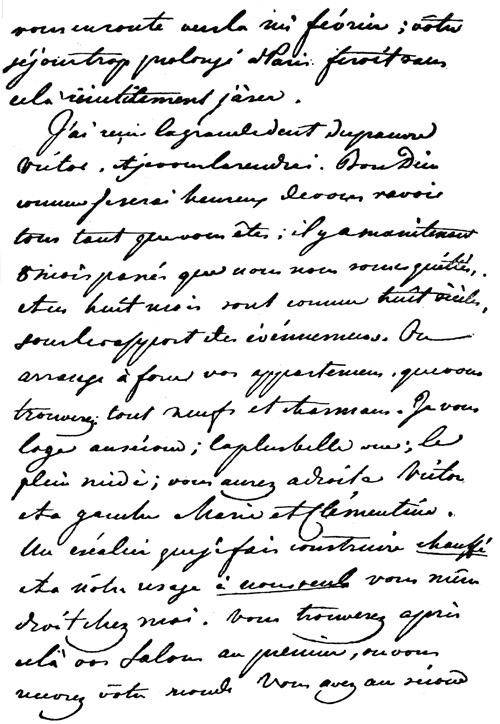 vous en route vers la mi février ; vôtre
séjour trop prolongé à Paris feroit sans
celà inutilement jâser.
J'ai reçu la grande dent du pauvre
Victor, et je vous la rendrai. Bon Dieu
comme je serai heureux de vous ravoir
tous tant que vous êtes ; il y a maintenant
8 mois passés que nous nous sommes quittés,
et ces huit mois sont comme huit siècles,
sous le rapport des évènnemens. On
arrange à force vos appartemens, que vous
trouverez tout neufs et charmans. Je vous
loge au second ; la plus belle vue ; le
plein midi ; vous aurez à droite Victor
et à gauche Marie et Clémentine.
Un escalier que je fais construire chauffé
et à nôtre usage à nous seuls vous mène
droit chez moi. Vous trouverez après
celà vos Salons au premier, où vous
recevrez vôtre monde. Vous avez au second